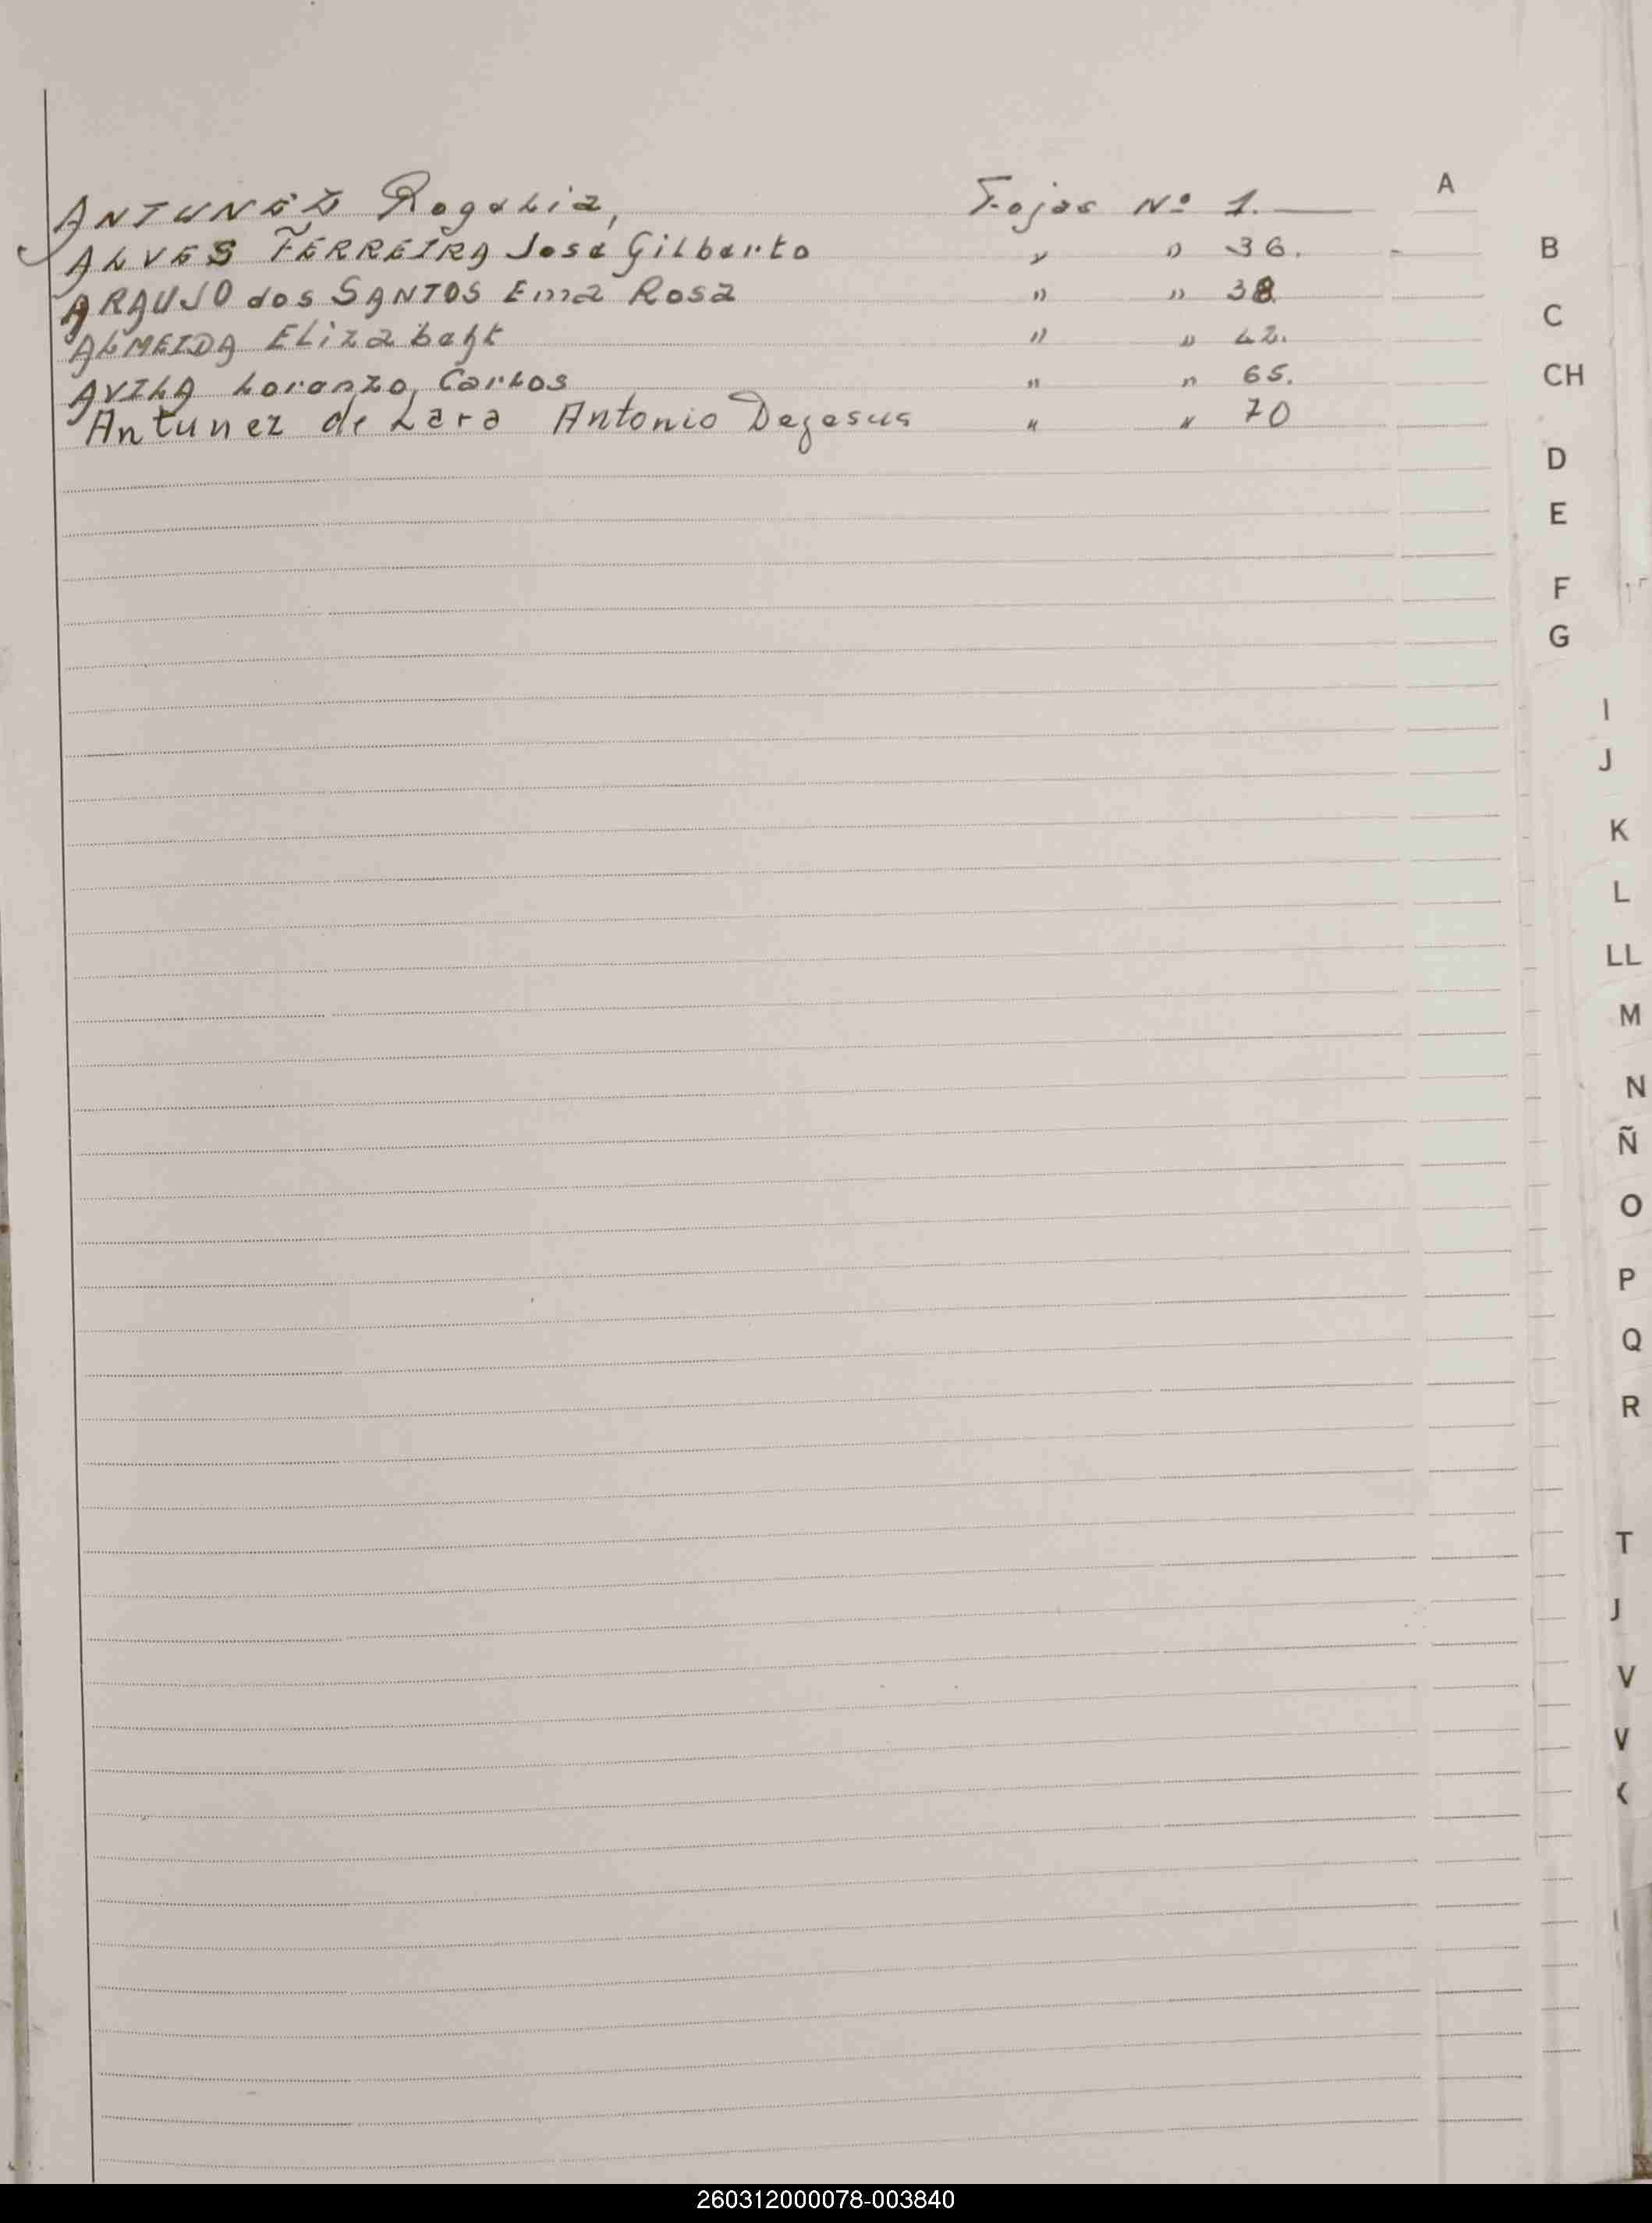 A
ANTUNEZ Rogelia, Fojas Nº 1.
ALVES FERREIRA José Gilberto " " 36.
ARAUJO dos SANTOS Ema Rosa " " 38.
ALMEIDA Elizabeht " " 42.
AVILA Lorenzo, Carlos " " 65.
Antunez de Lara Antonio Dejesus " " 70
B
C
CH
D
E
F
G
I
J
K
L
LL
M
N
Ñ
O
P
Q
R
T
J
V
V
260312000078-003840